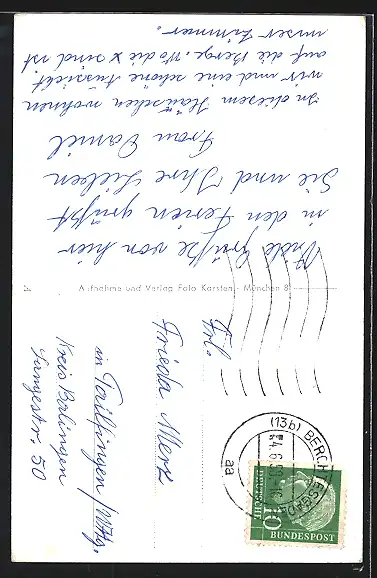 Viele Grüße von hier
in den Ferien grüßt
Sie und Ihre Lieben
Frau Daniel
In diesem Häuschen wohnen
wir und eine schöne Aussicht
auf die Berge. Wo die x sind ist
unser Zimmer.
Aufnahme und Verlag Foto Karsten - München 8
Frl.
Frieda Merz
in Tailfingen / Wttbg.
Kreis Balingen
Langestr. 50
(13b) BERCH
aa
DEUTSCHE
BUNDESPOST
10